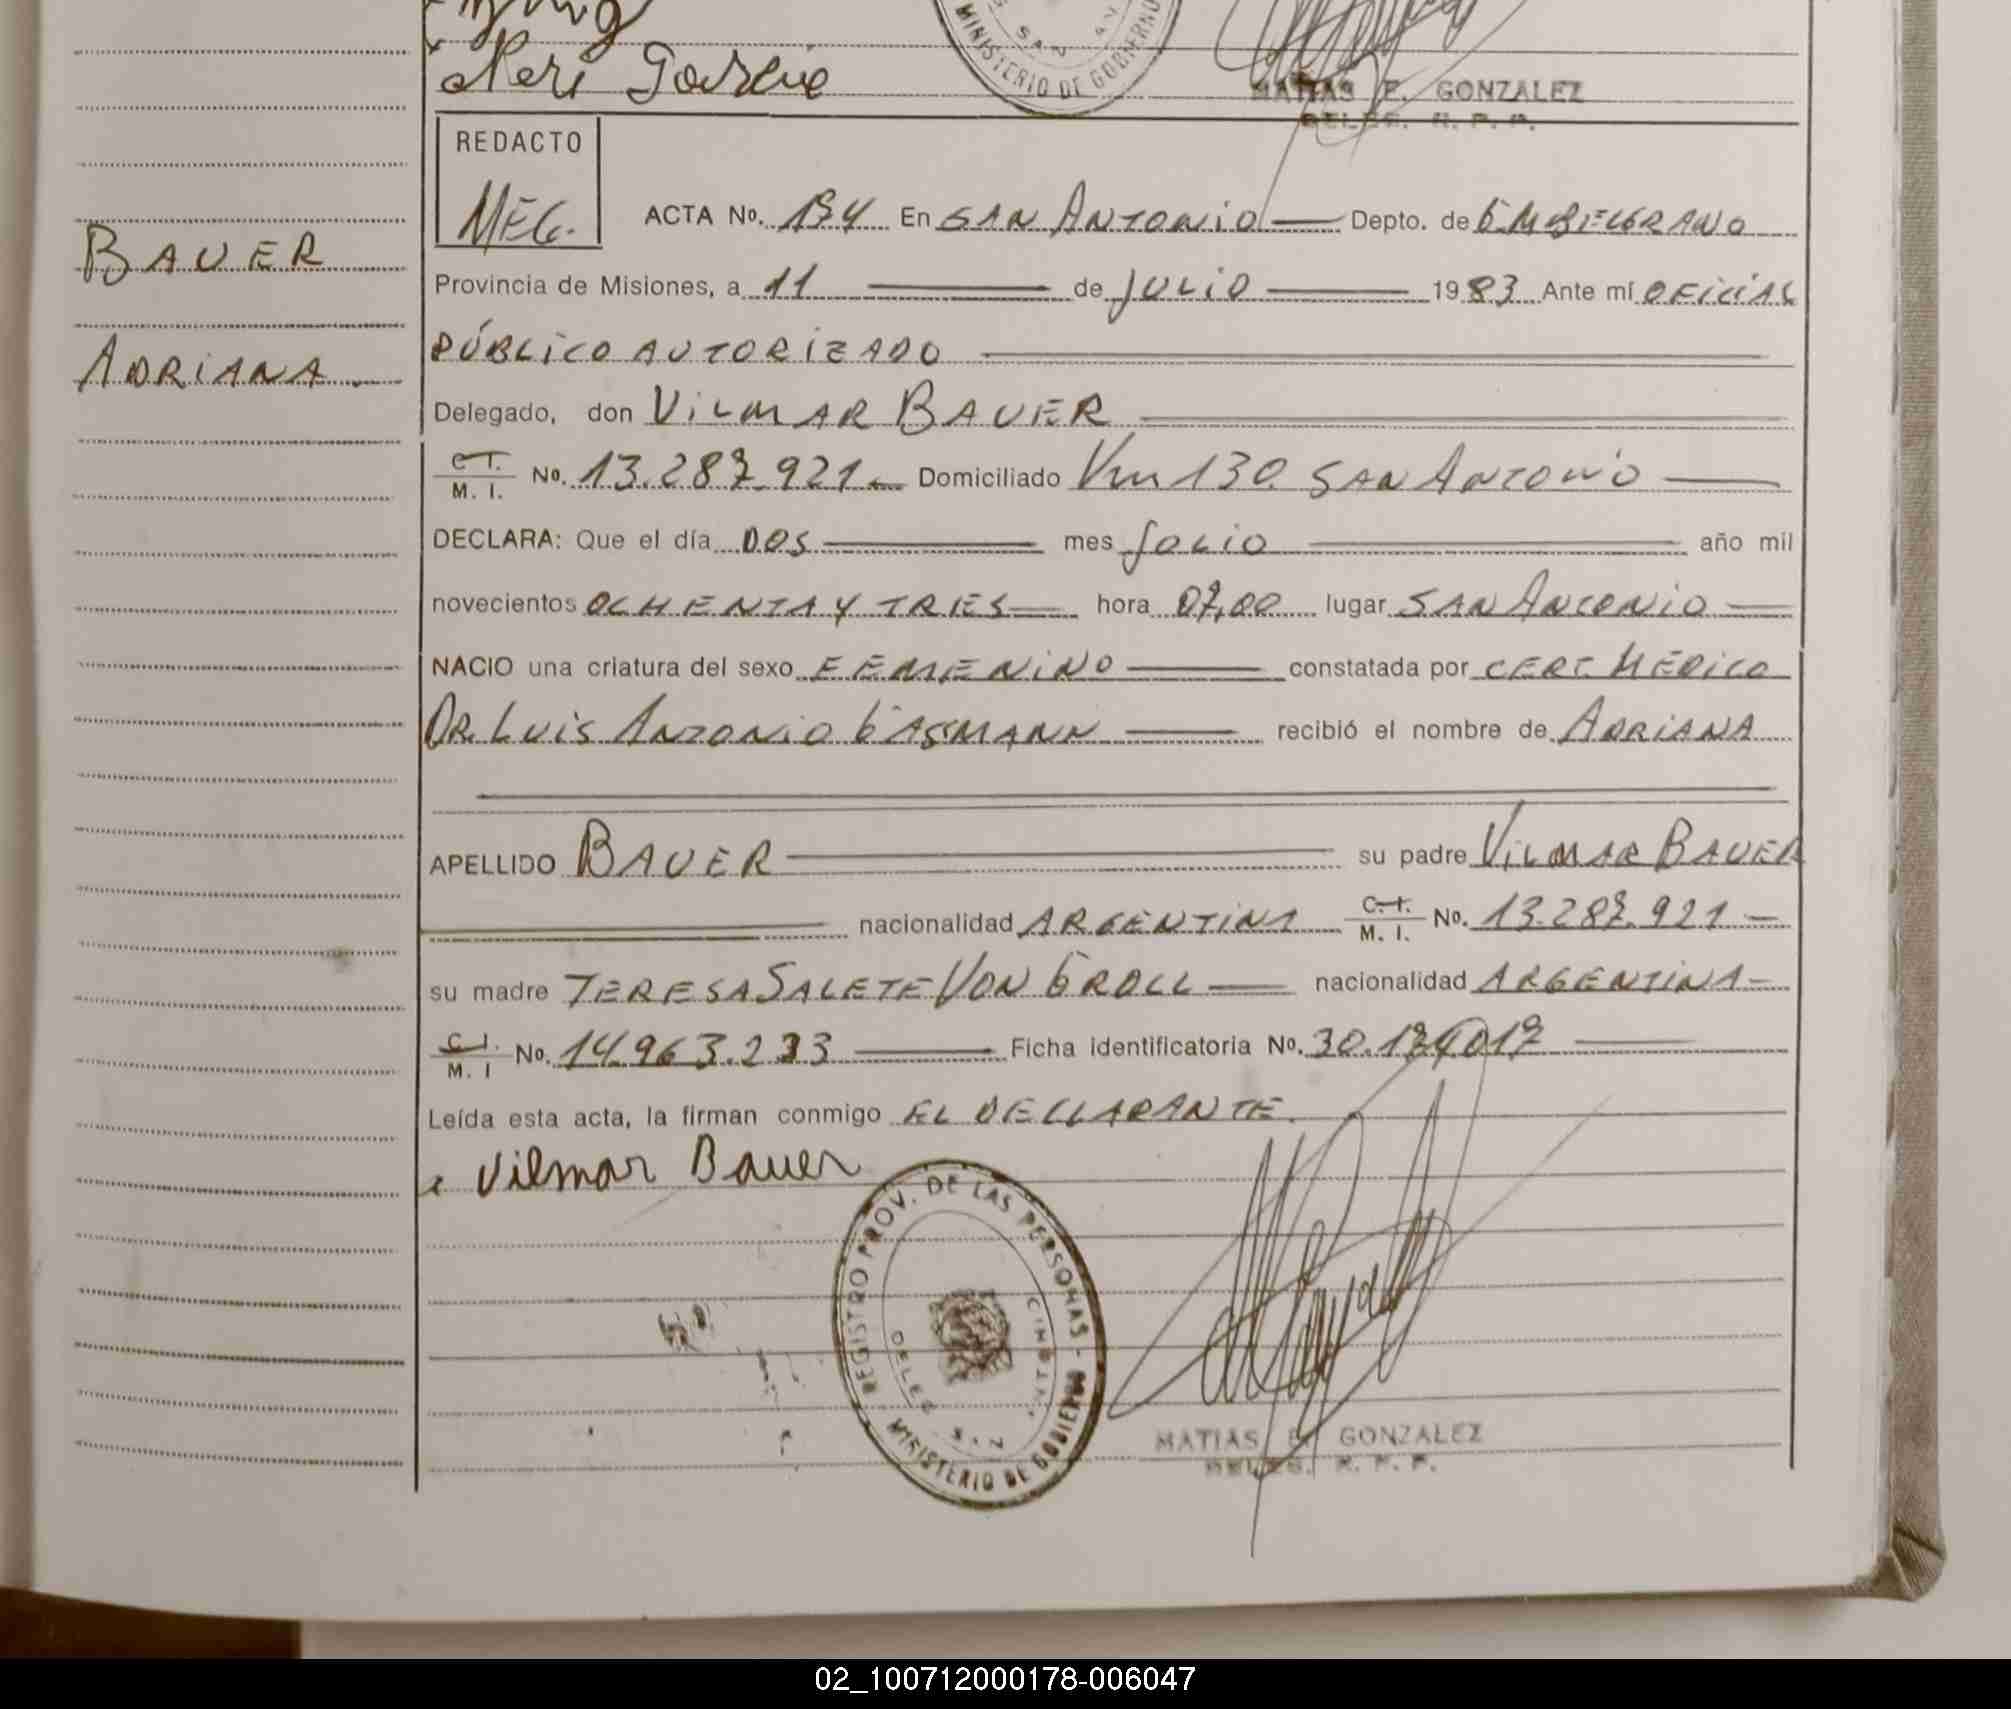 Neri Garcia
MINISTERIO DE GOBIERNO
SAN AN
MATIAS E. GONZALEZ
DELEG. R. P. P.
REDACTO
MEG.
ACTA No. 134 En SAN ANTONIO Depto. de G. M. BELGRANO
BAUER
Provincia de Misiones, a 11 de JULIO 1983 Ante mí OFICIAL
PÚBLICO AUTORIZADO
ADRIANA.
Delegado, don VILMAR BAUER
C. I.
M. I. No. 13.287.921 Domiciliado Km 130 SAN ANTONIO
DECLARA: Que el día DOS mes JULIO año mil
novecientos OCHENTA Y TRES hora 07,00 lugar SAN ANTONIO
NACIO una criatura del sexo FEMENINO constatada por CERT. MÉDICO
DR. LUIS ANTONIO GASMANN recibió el nombre de ADRIANA
APELLIDO BAUER su padre VILMAR BAUER
nacionalidad ARGENTINA C. I.
M. I. No. 13.287.921
su madre TERESA SALETE VON GROLL nacionalidad ARGENTINA
C. I.
M. I No. 14.963.233 Ficha identificatoria No. 30.174.017
Leída esta acta, la firman conmigo EL DECLARANTE.
Vilmar Bauer
REGISTRO PROV. DE LAS PERSONAS - MINISTERIO DE GOBIERNO
MATIAS E. GONZALEZ
DELEG. R. P. P.
02_100712000178-006047